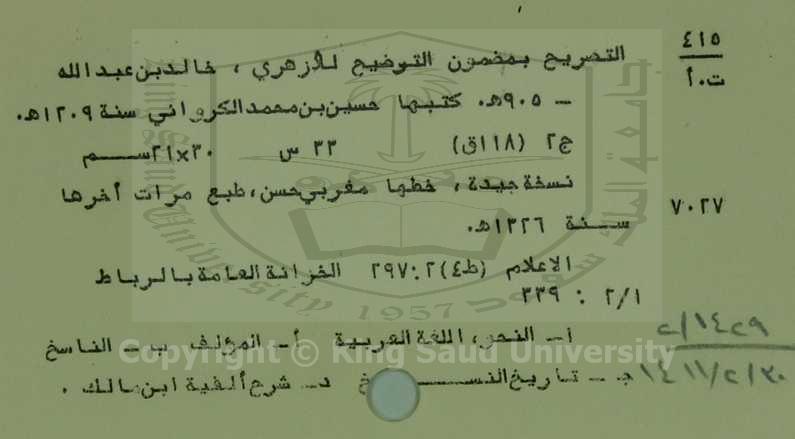 ٤١٥
ت.أ
التصريح بمضمون التوضيح للأزهري ، خالدبن عبدالله
ـ ٩٠٥هـ. كتبها حسين بن محمد الكرواني سنة ١٢٠٩هـ.
ج٢ (١١٨ق) ٣٣ س ٣٠×٢١ســـم
٧٠٢٧
نسخة جيدة ، خطها مغربي حسن ، طبع مرات أخرها
ســنة ١٣٢٦هـ.
الاعلام (ط٤)٢ : ٢٩٧ الخزانة العامة بالرباط
٢/١ : ٣٣٩
١ـ النحو، اللغة العربية أـ المؤلف ب ـ الناسخ
جـ ـ تاريخ النســـخ د ـ شرح ألفية ابن مالك .
١٤٢٩/ح
١٤١١/٢/٢٠
Copyright © King Saud University
جامعة الملك سعود
King Saud University
1957